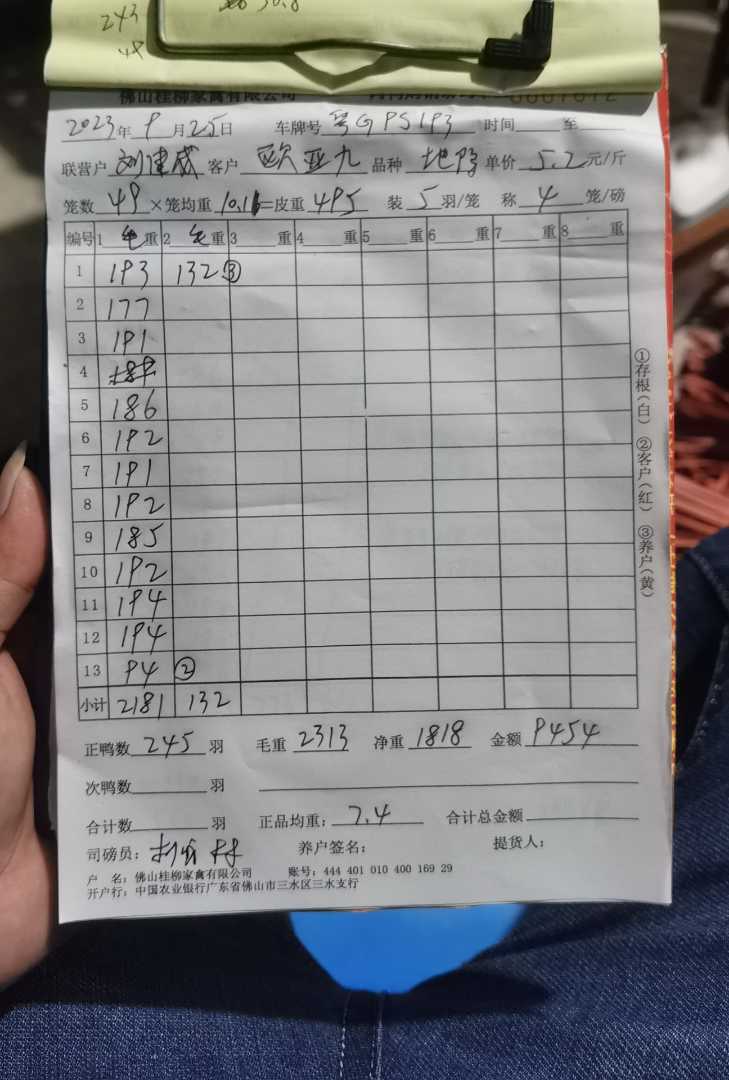 243
48
佛山桂柳家禽有限公司
2023年9月25日 车牌号 粤GP5193 时间 至
联营户 刘建威 客户 欧亚九 品种 单价 5.2元/斤
笼数 49 ×笼均重 10.1 =皮重 495 装 5 羽/笼 称 4 笼/磅
编号 1 毛重 2 毛重 3 重 4 重 5 重 6 重 7 重 8 重
1 193 132 ③
2 177
3 191
4
5 186
6 192
7 191
8 192
9 185
10 192
11 194
12 194
13 94 ②
小计 2181 132
①存根(白) ②客户(红) ③养户(黄)
正鸭数 245 羽 毛重 2313 净重 1818 金额 9454
次鸭数 羽
合计数 羽 正品均重: 7.4 合计总金额
司磅员: 养户签名: 提货人:
户 名: 佛山桂柳家禽有限公司 账号: 444 401 010 400 169 29
开户行: 中国农业银行广东省佛山市三水区三水支行